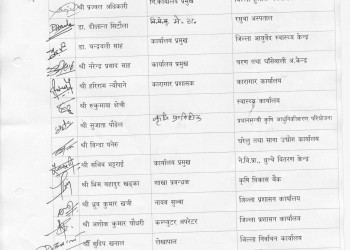 श्री प्रज्वल अधिकारी नि.कार्यालय प्रमुख
डा. दीलमान सिटौला नि.मे.सु. मे. सु. रसुवा अस्पताल
डा. चन्द्रवली साह कार्यालय प्रमुख जिल्ला आयुर्वेद स्वास्थ्य केन्द्र
श्री नरेन्द्र प्रसाद साह कार्यालय प्रमुख चरण तथा घाँसेबाली अ.केन्द्र
श्री हरिराम न्यौपाने कारागार प्रशासक कारागार कार्यालय
श्री रुकुमाया क्षेत्री स्वास्थ्य कार्यालय
श्री सुजाता पौडेल कृषि प्राविधिक प्रधानमन्त्री कृषि आधुनिकीकरण परियोजना
श्री विन्दा पनेरु घरेलु तथा साना उद्योग कार्यालय
श्री सचिव भट्टराई कार्यालय प्रमुख ने.वि.प्रा., धुन्चे वितरण केन्द्र
श्री भिम बहादुर खड्का शाखा प्रबन्धक कृषि विकास बैंक
श्री ध्रुव कुमार खत्री नायव सुब्बा जिल्ला प्रशासन कार्यालय
श्री अशोक कुमार चौधरी कम्प्युटर अपरेटर जिल्ला प्रशासन कार्यालय
श्री सुदिप खनाल लेखापाल जिल्ला निर्वाचन कार्यालय